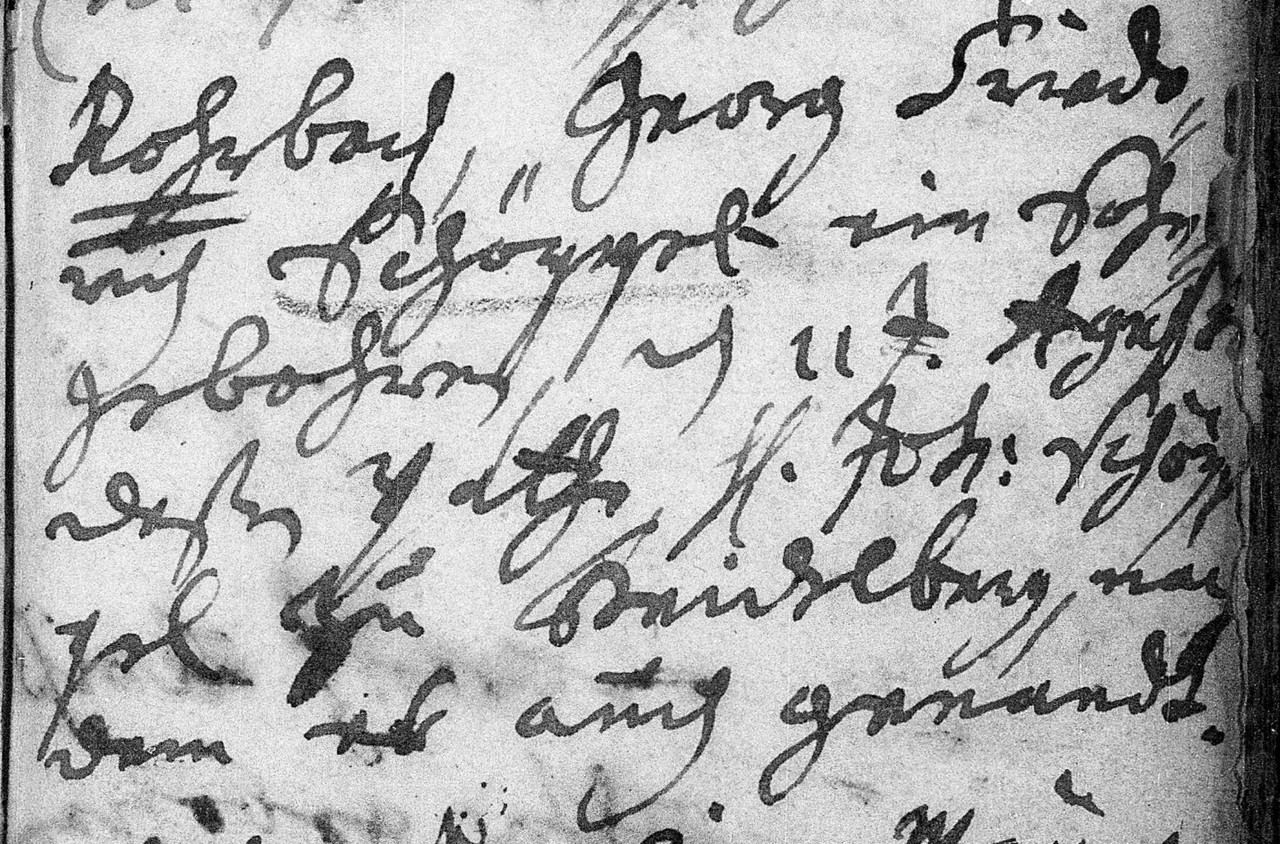 Rohrbach, Georg Fried-
rich Schöppel ein Sohn
gebohren, d 11t.
deßen Path H. Joh: Schöp-
pel zu Heidelberg, nach
dem es auch genandt.